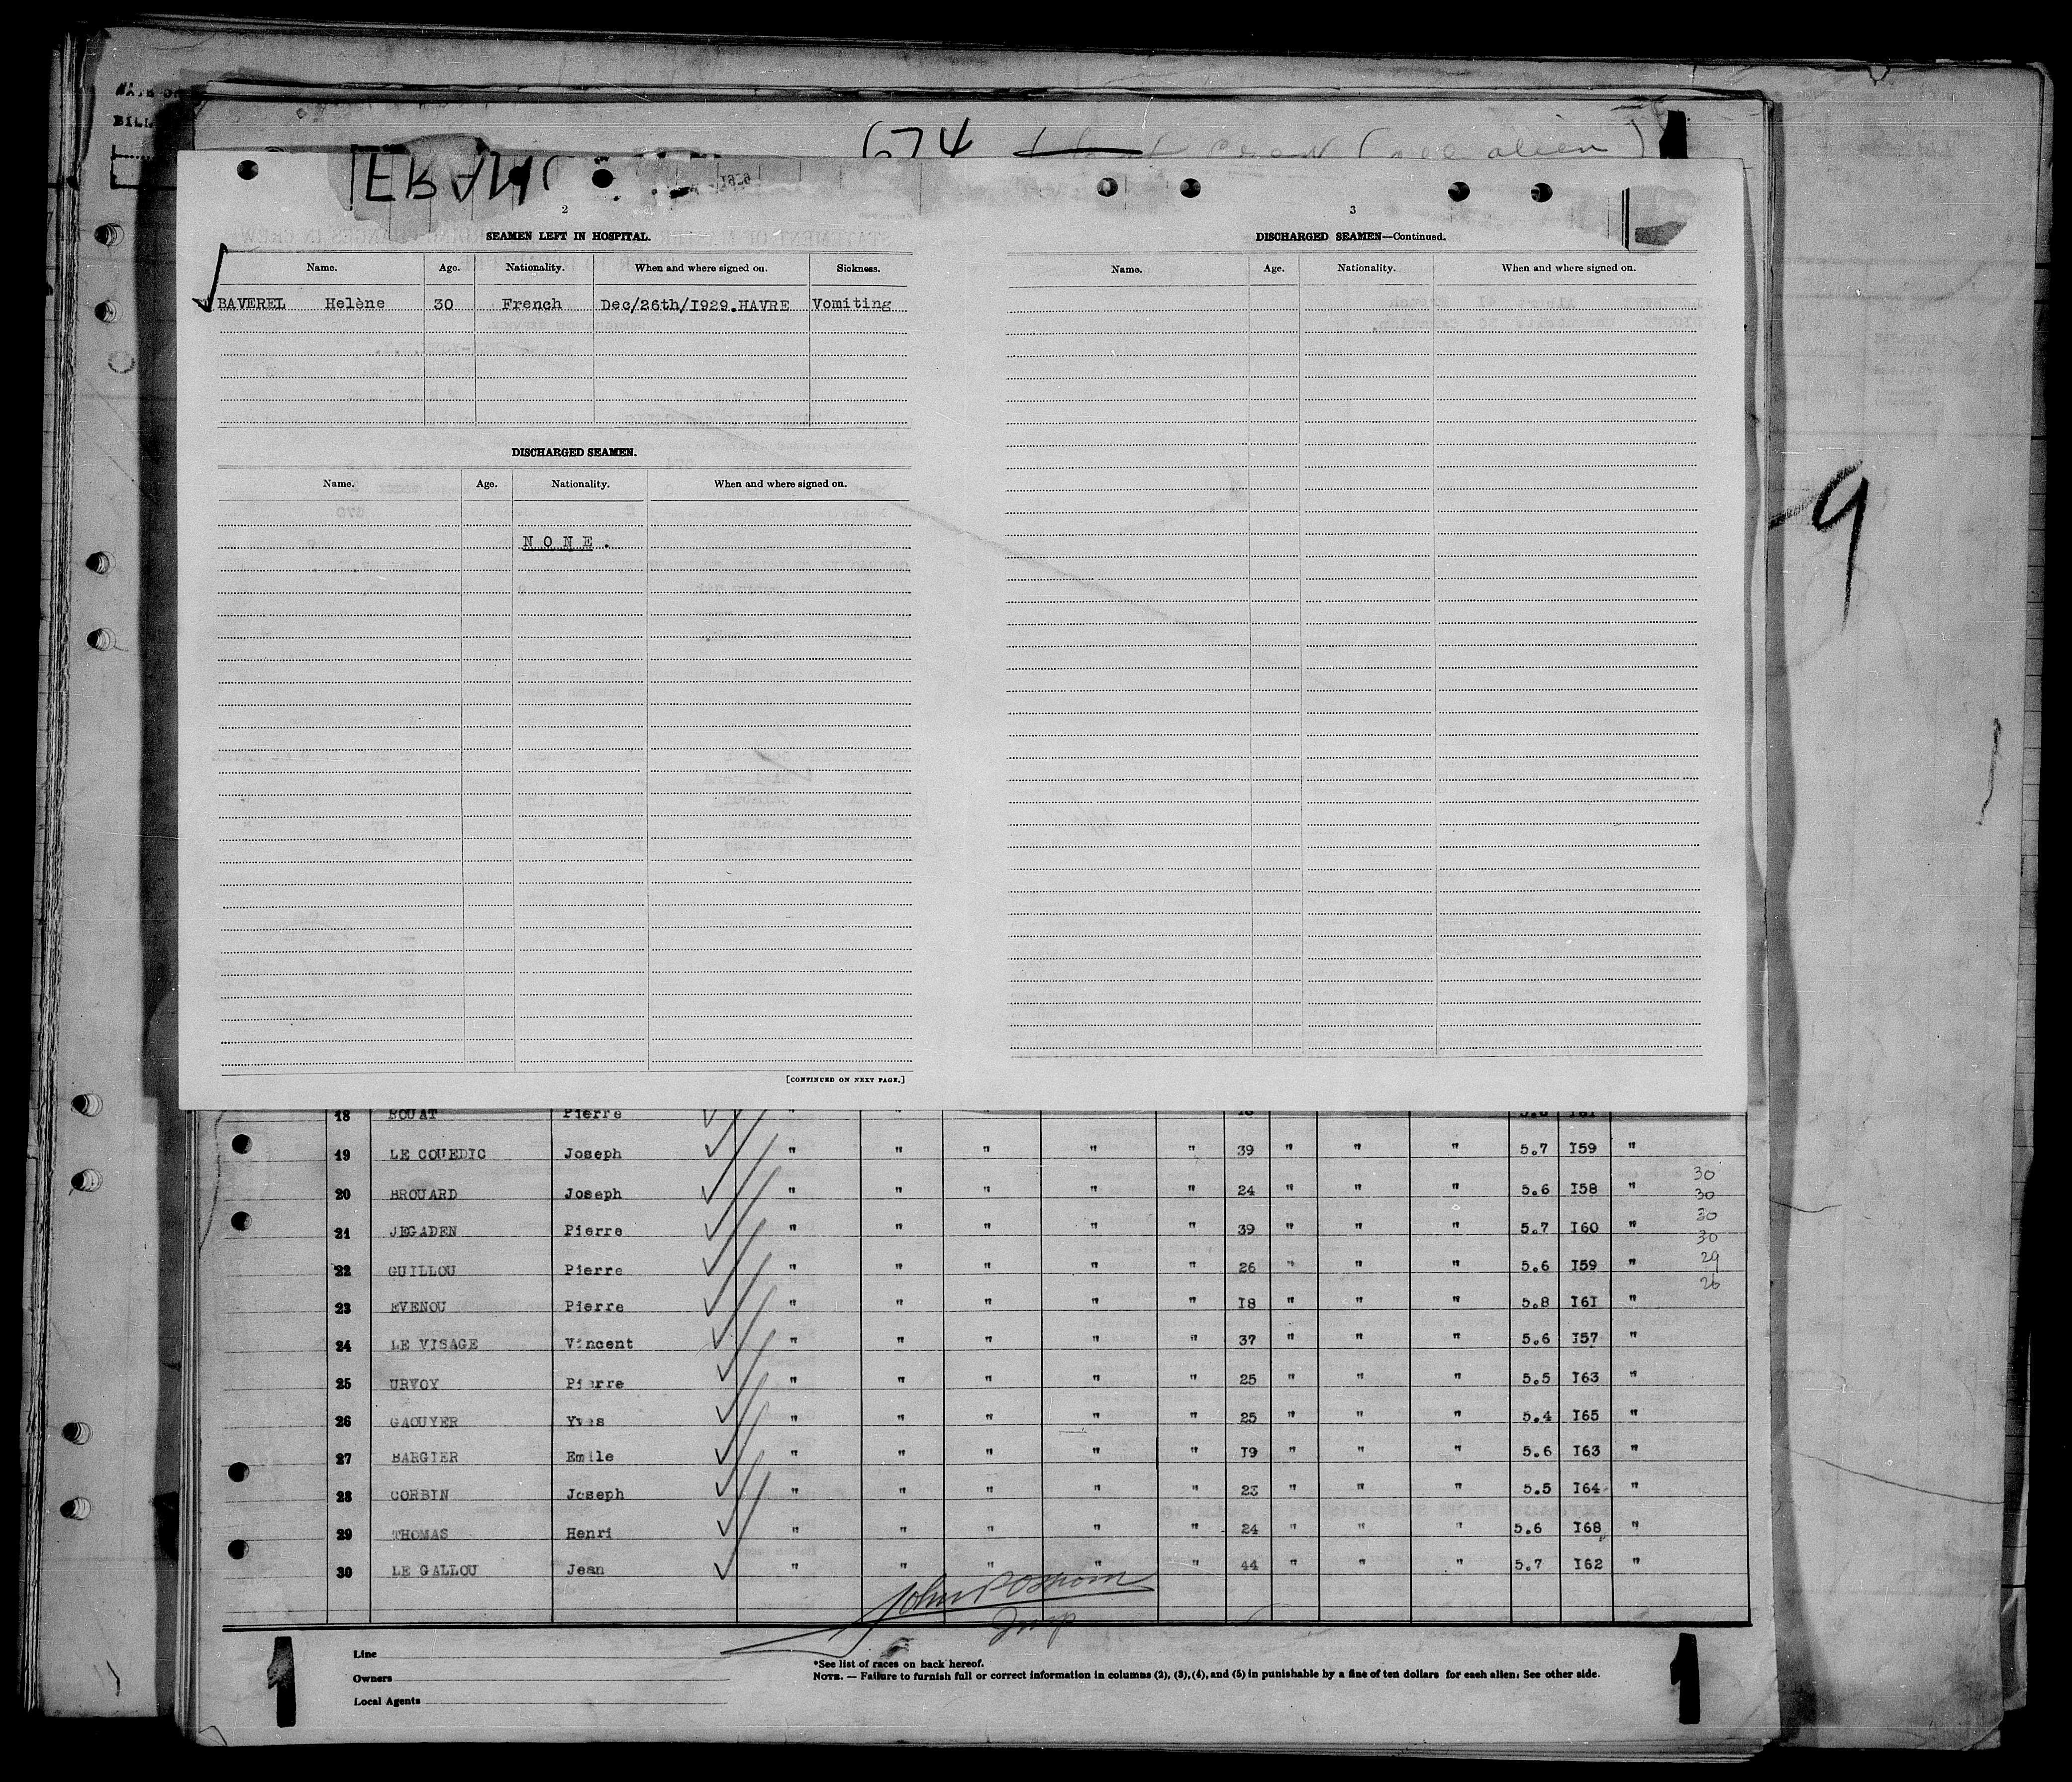 BILL
674 (all alien)
2
SEAMEN LEFT IN HOSPITAL.
Name. Age. Nationality. When and where signed on. Sickness.
BAVEREL Helène 30 French Dec/26th/I929.HAVRE Vomiting
DISCHARGED SEAMEN.
Name. Age. Nationality. When and where signed on.
N O N E .
[CONTINUED ON NEXT PAGE.]
3
DISCHARGED SEAMEN—Continued.
Name. Age. Nationality. When and where signed on.
9
18 ROUAT Pierre " " " "
19 LE COUEDIC Joseph " " " " " 39 " " " 5.7 I59 "
20 BROUARD Joseph " " " " " 24 " " " 5.6 I58 "
21 JEGADEN Pierre " " " " " 39 " " " 5.7 I60 "
22 GUILLOU Pierre " " " " " 26 " " " 5.6 I59 "
23 EVENOU Pierre " " " " " I8 " " " 5.8 I6I "
24 LE VISAGE Vincent " " " " " 37 " " " 5.6 I57 "
25 URVOY Pierre " " " " " 25 " " " 5.5 I63 "
26 GAOUYER Yves " " " " " 25 " " " 5.4 I65 "
27 BARGIER Emile " " " " " I9 " " " 5.6 I63 "
28 CORBIN Joseph " " " " " 23 " " " 5.5 I64 "
29 THOMAS Henri " " " " " 24 " " " 5.6 I68 "
30 LE GALLOU Jean " " " " " 44 " " " 5.7 I62 "
30
30
30
30
29
26
John
Insp
1
Line
Owners
Local Agents
*See list of races on back hereof.
NOTE. — Failure to furnish full or correct information in columns (2), (3), (4), and (5) in punishable by a fine of ten dollars for each alien. See other side.
1